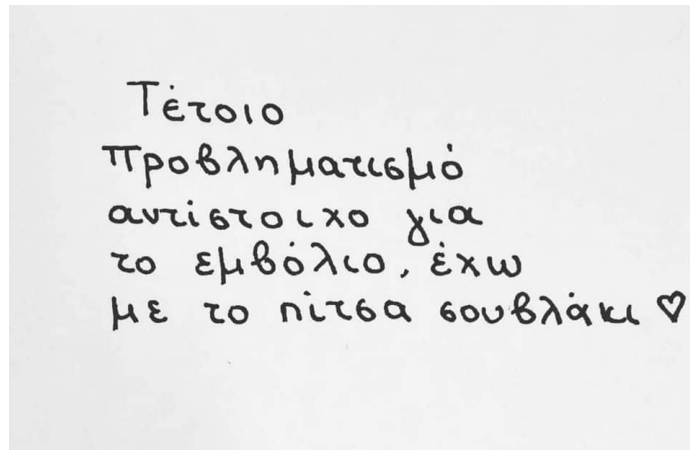 Τέτοιο
προβληματισμό
αντίστοιχο για
το εμβόλιο, έχω
με το πίτσα σουβλάκι ♡